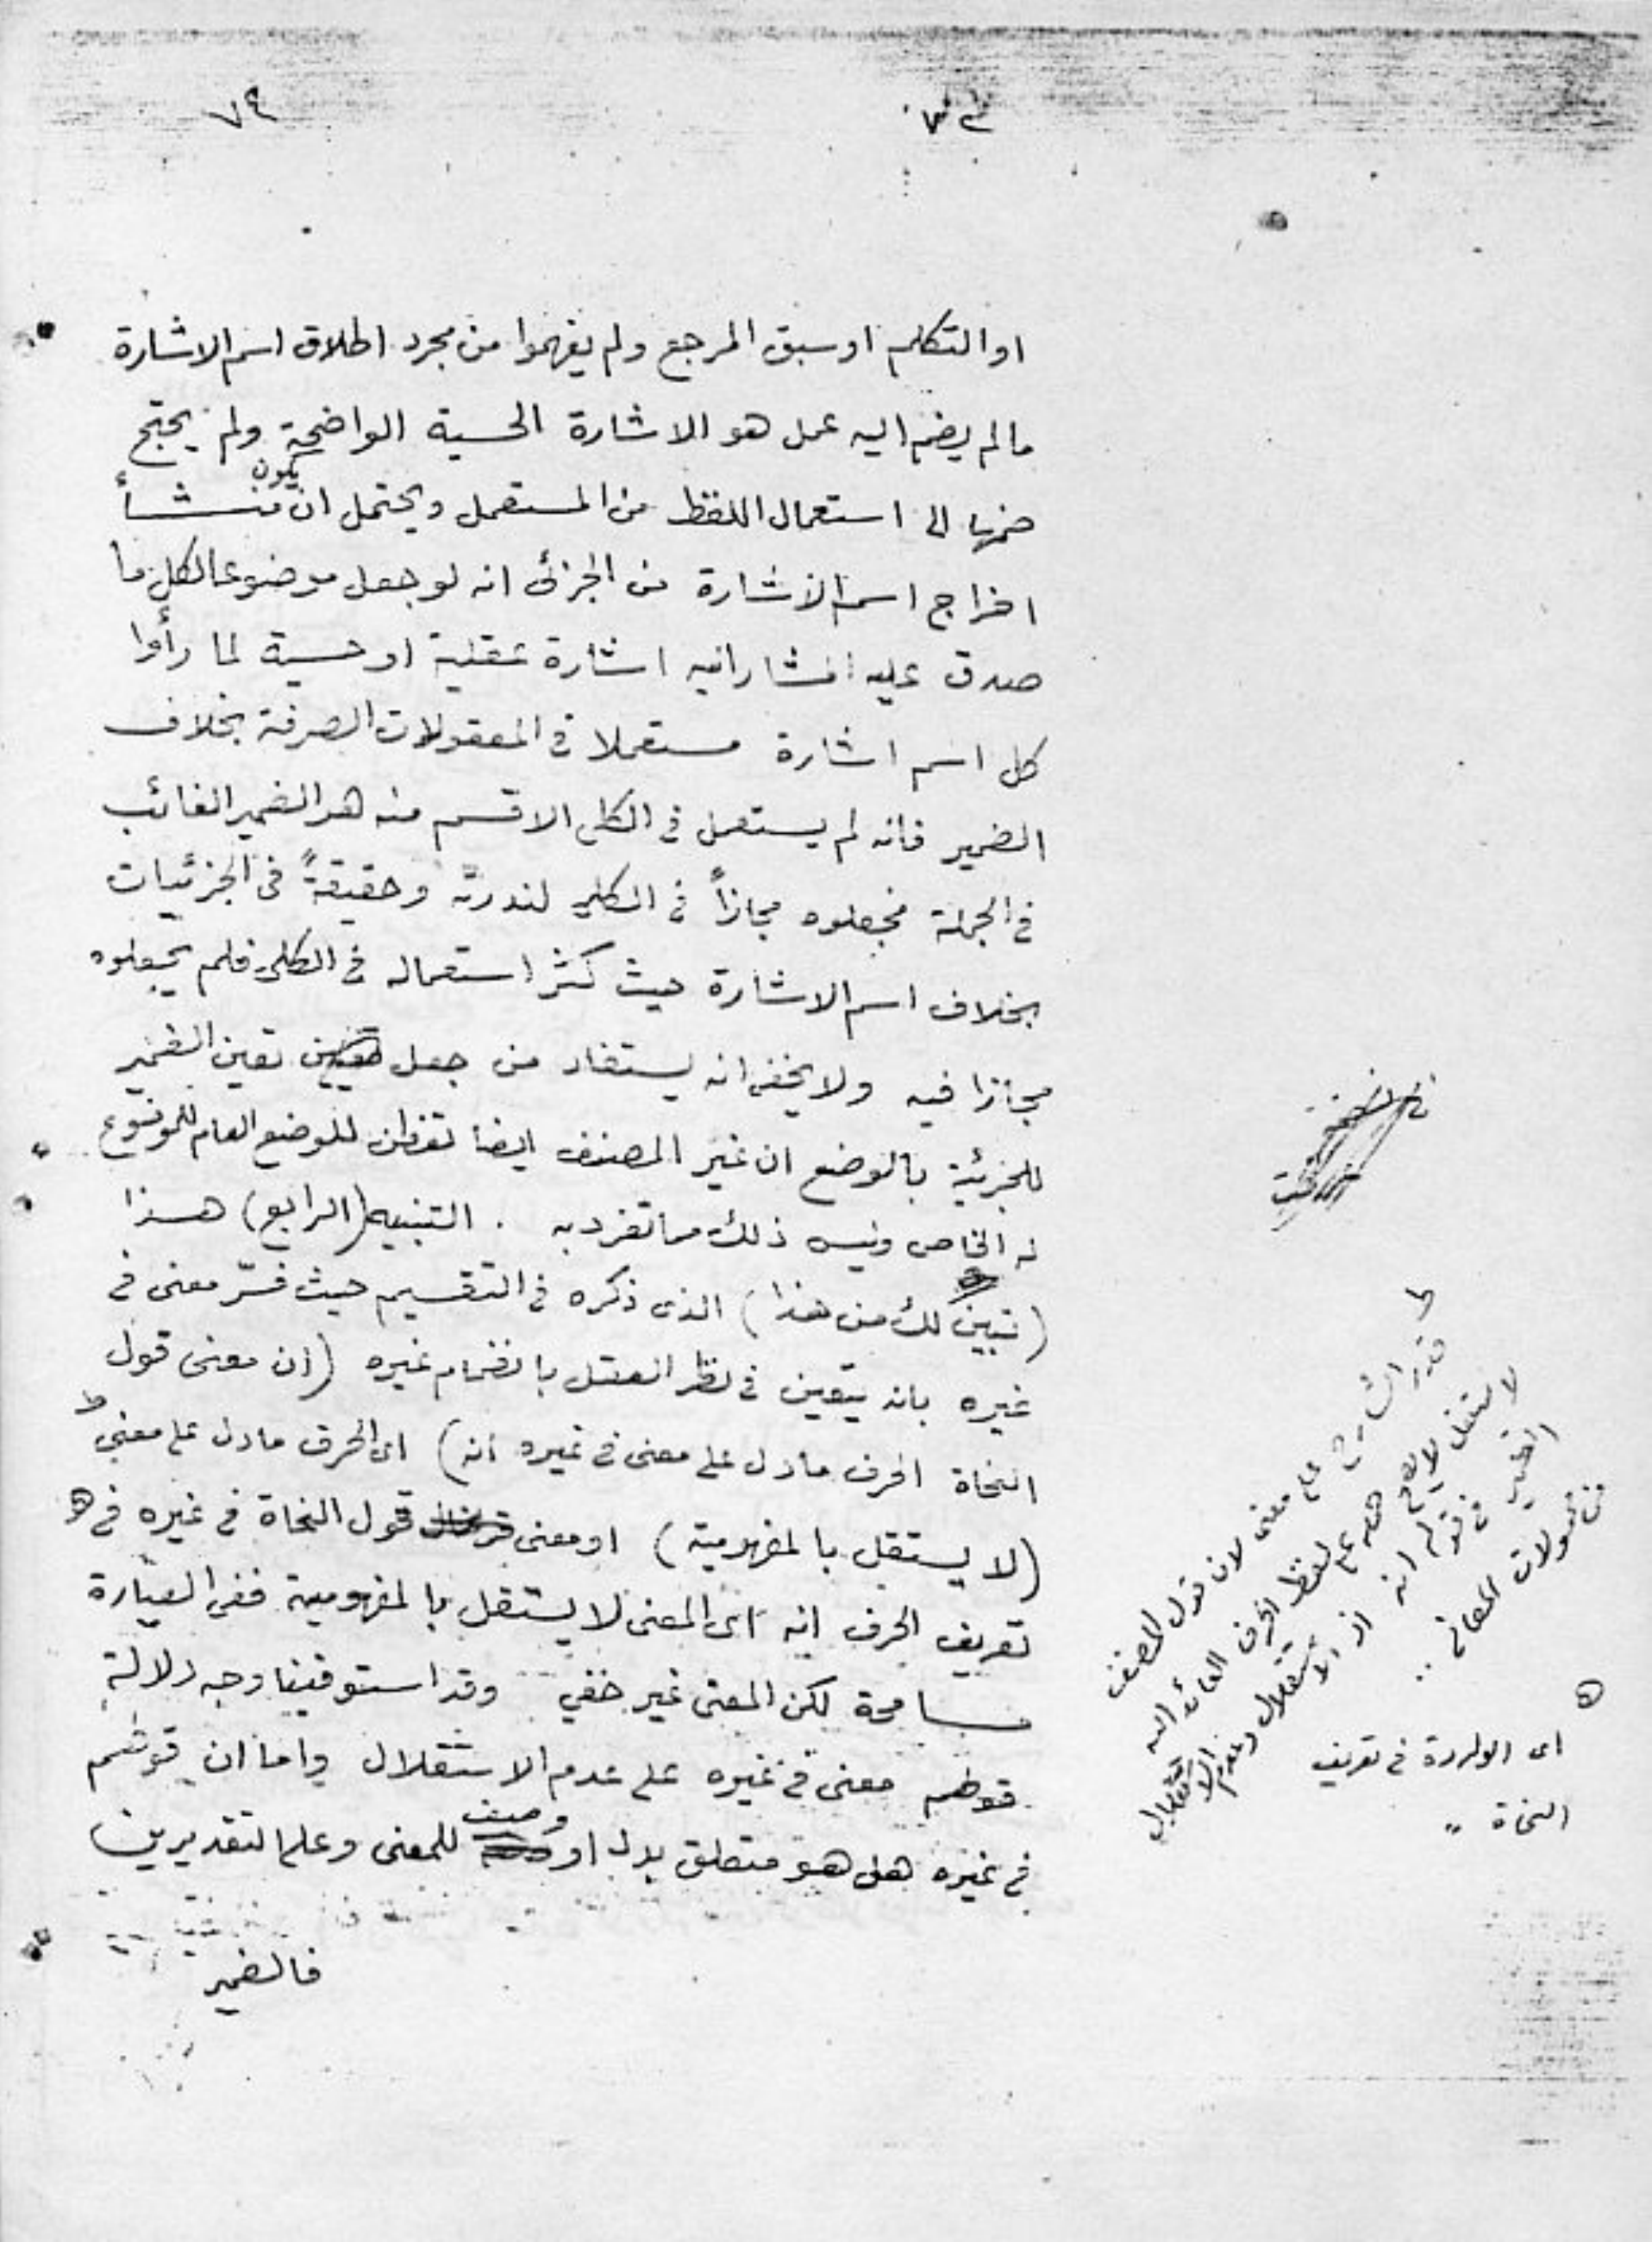 ٧٩
او التكلم او سبق المرجع ولم يفهموا من مجرد اطلاق اسم الاشارة
مالم يضم اليه عمل هو الاشارة الحسية الواضحة ولم يحتج
ضمها الى استعمال اللفظ من المستعمل ويحتمل ان يكون منشأ
اخراج اسم الاشارة من الجزئى انه لو جعل موضوعا لكل ما
صدق عليه المشار اليه اشارة عقلية او حسية لما رأوا
كل اسم اشارة مستعملا في المعقولات الصرفة بخلاف
الضمير فانه لم يستعمل في الكلى الا قسم منه هو الضمير الغائب
في الجملة فجعلوه مجازاً في الكلي لندرته وحقيقةً في الجزئيات
بخلاف اسم الاشارة حيث كثر استعماله في الكلى فلم يجعلوه
مجازا فيه ولا يخفى انه يستفاد من جعل تعين الضمير
للجزئية بالوضع ان غير المصنف ايضا تفطن للوضع العام للموضوع
له الخاص وليس ذلك مما تفرد به . التنبيه (الرابع) هذا
(تبين لك من هذا) الذى ذكره في التقسيم حيث فسّر معنى في
غيره بانه يتعين في نظر العقل بانضمام غيره (ان معنى قول
النحاة الحرف مادل على معنى في غيره انه) اى الحرف مادل على معنى ط
(لا يستقل بالمفهومية) او معنى قول النحاة في غيره في ه
تعريف الحرف انه اى المعنى لا يستقل بالمفهومية ففي العبارة
مسامحة لكن المعنى غير خفي وقد استوفينا وجه دلالة
قولهم معنى في غيره على عدم الاستقلال واما ان قولهم
في غيره هل هو متعلق بدل او وصف للمعنى وعلى التقديرين
فالضمير
ط
قدر الشارح على معنى لان قول المصنف
لا يستقل لا يصح حمله على لفظ الحرف العائد اليه
الضمير في قولهم انه اذ الاستقلال وعدم الاستقلال
من مقولات المعاني ..
ه
اى الواردة في تعريف
النحاة "